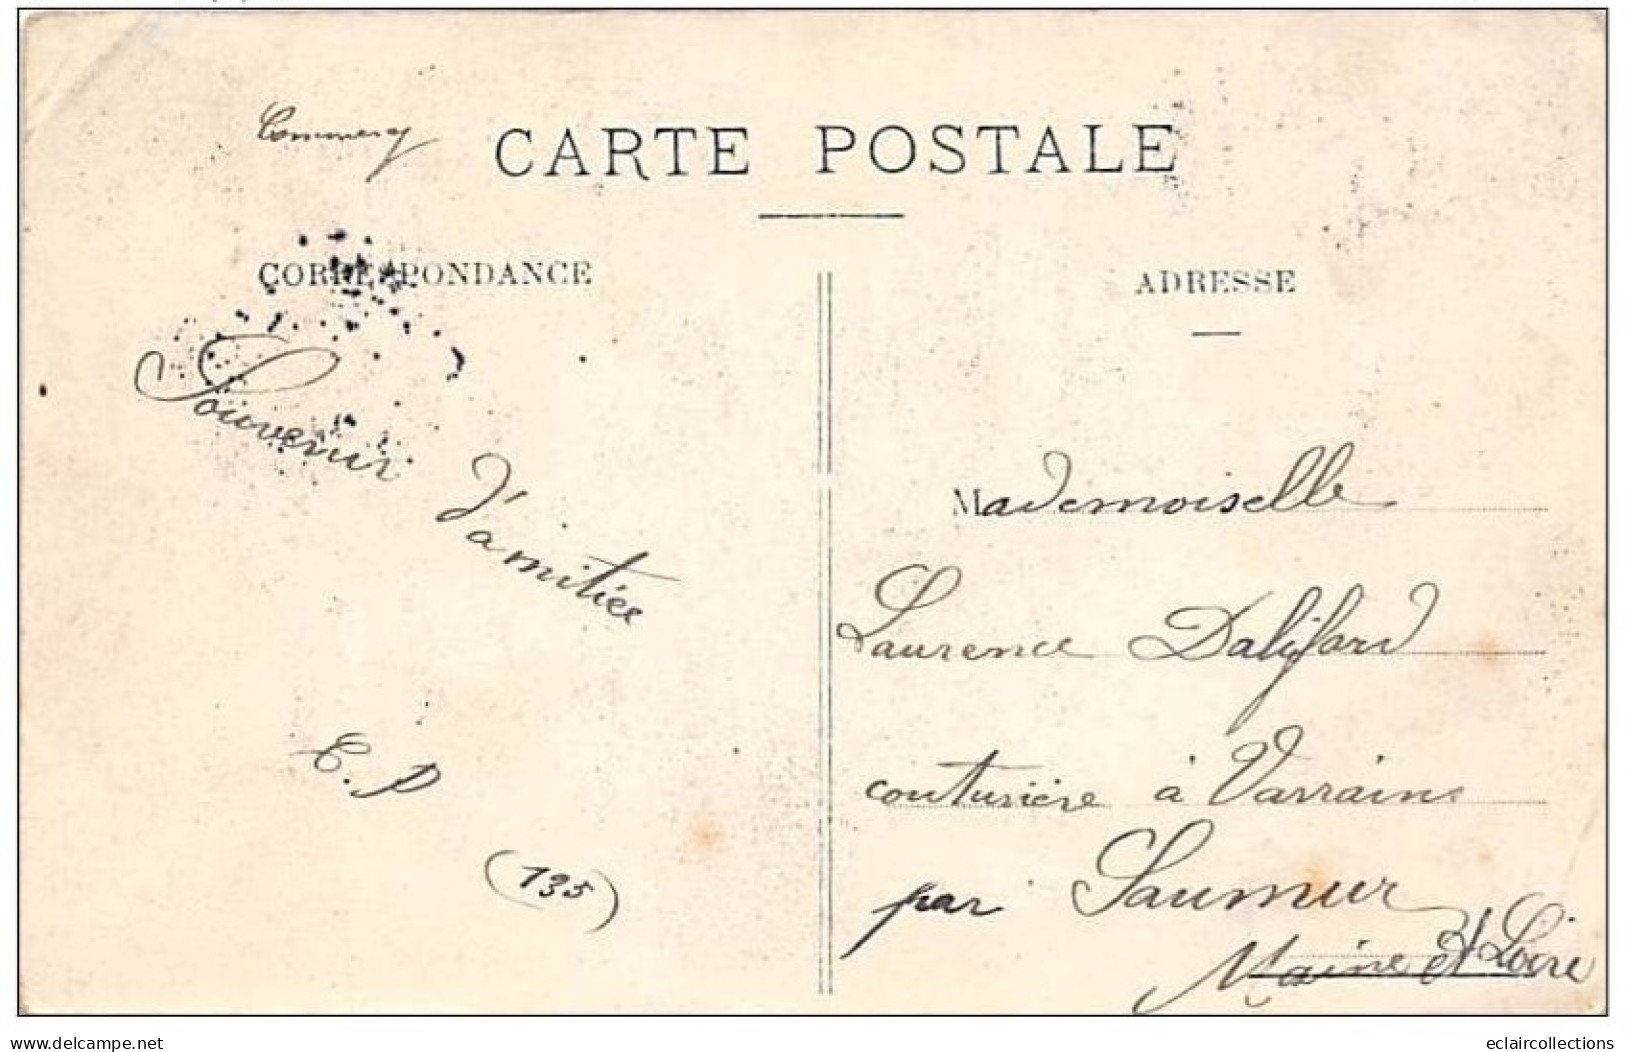 Commercy
CARTE POSTALE
CORRESPONDANCE
ADRESSE
Souvenir
d'amitiée
E. P
(135)
Mademoiselle
Laurence Dalifard
couturière à Varrains
par Saumur
Maine et Loire
delcampe.net
eclaircollections